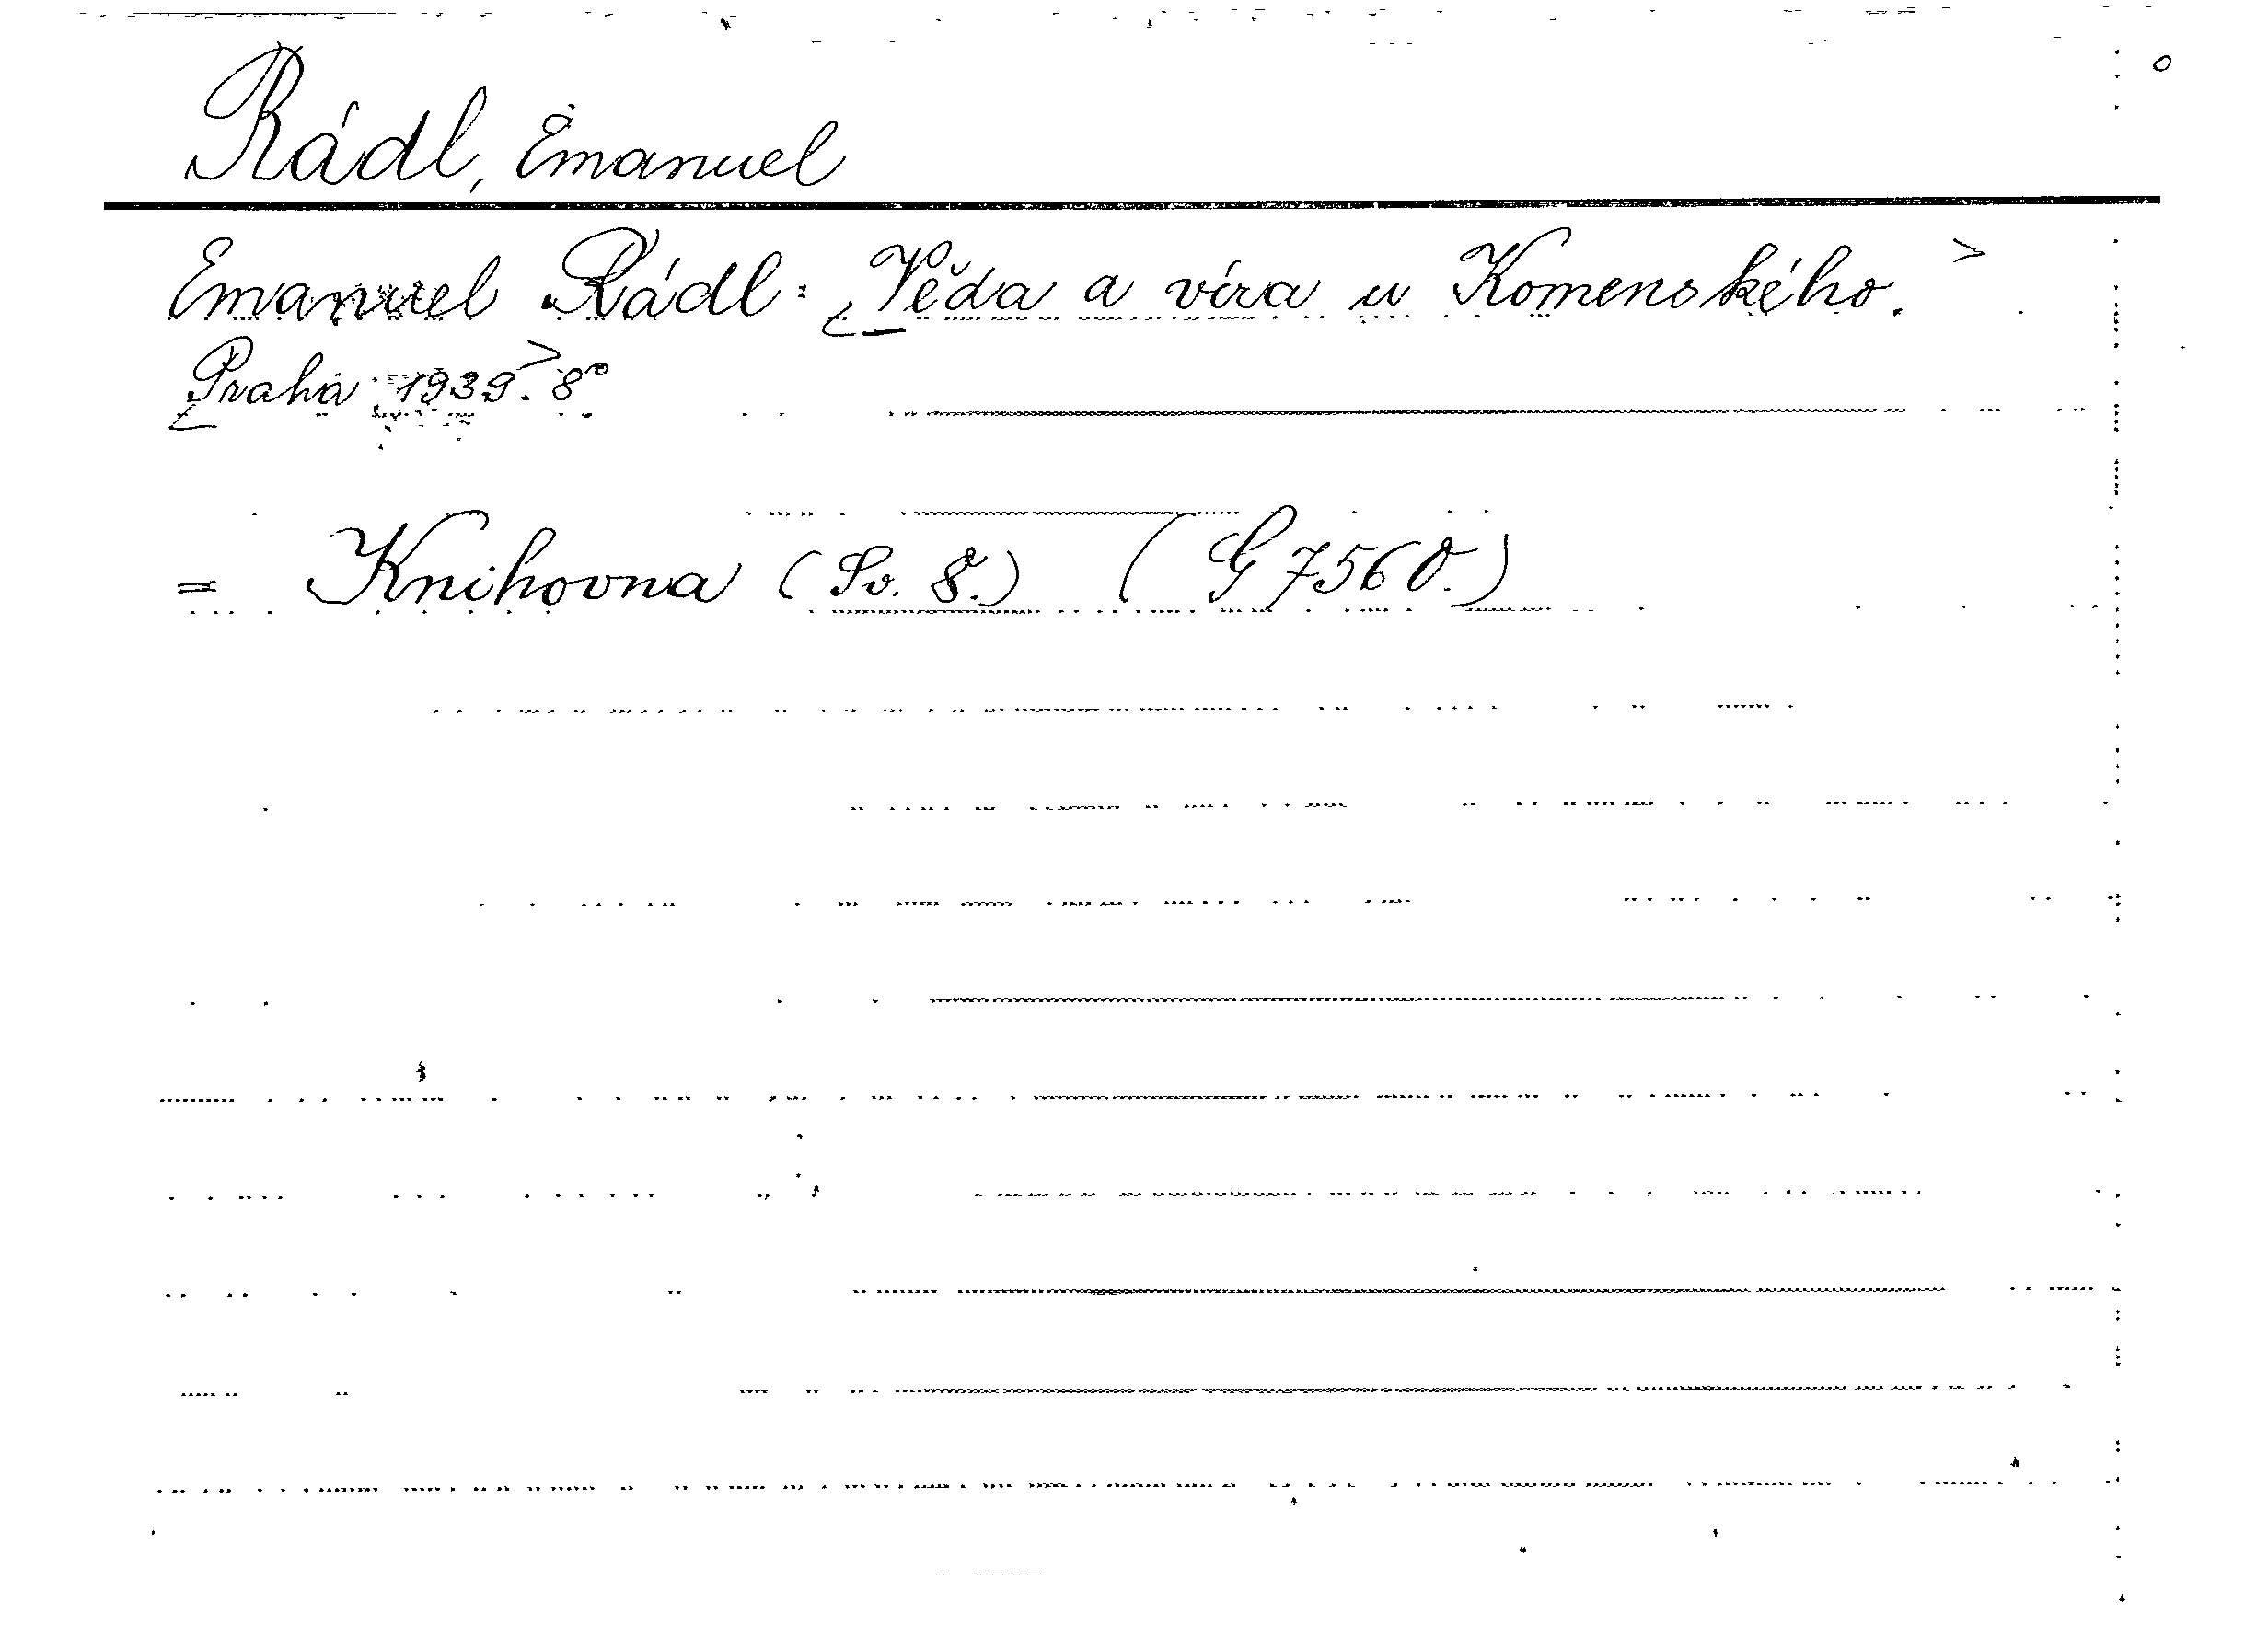 Rádl, Emanuel
Emanuel Rádl: Věda a víra u Komenského.
Praha 1939. 8°
= Knihovna (Sv. 8.) (G 7560.)